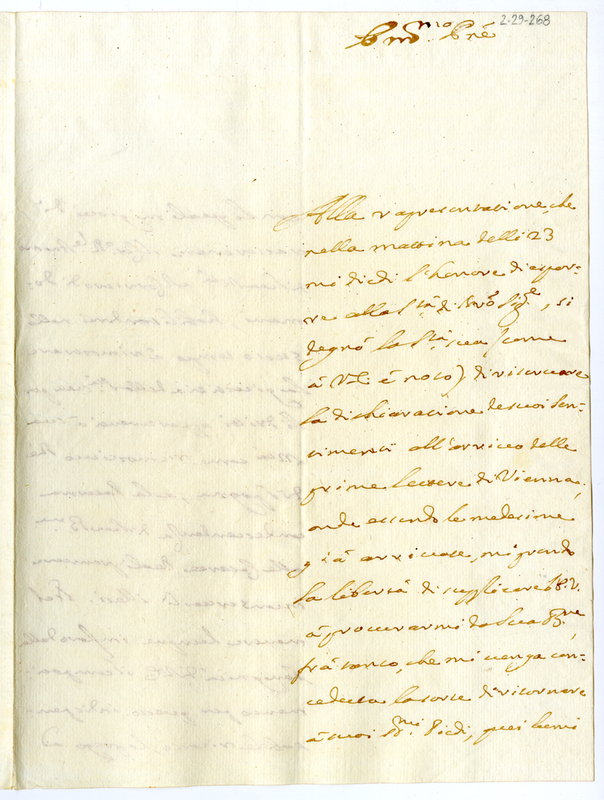 2-29-268
B.mo Prē
Alla rapresentatione, che
nella mattina delli 23
mi diedi l'honore di espor-
re alla S.tà di Nro Sig.e, si
degnò la S.tà sua (come
à V.E. è noto) di riservare
la dichiaratione de suoi sen-
timenti all'arrivo delle
prime lettere di Vienna;
onde essendo le medesime
già arrivate, mi prendo
la libertà di supplicare
à procurarmi da Sua B.ne
frà tanto, che mi venga con-
ceduta la sorte di ritornare
à suoi S.mi Piedi, quei lumi